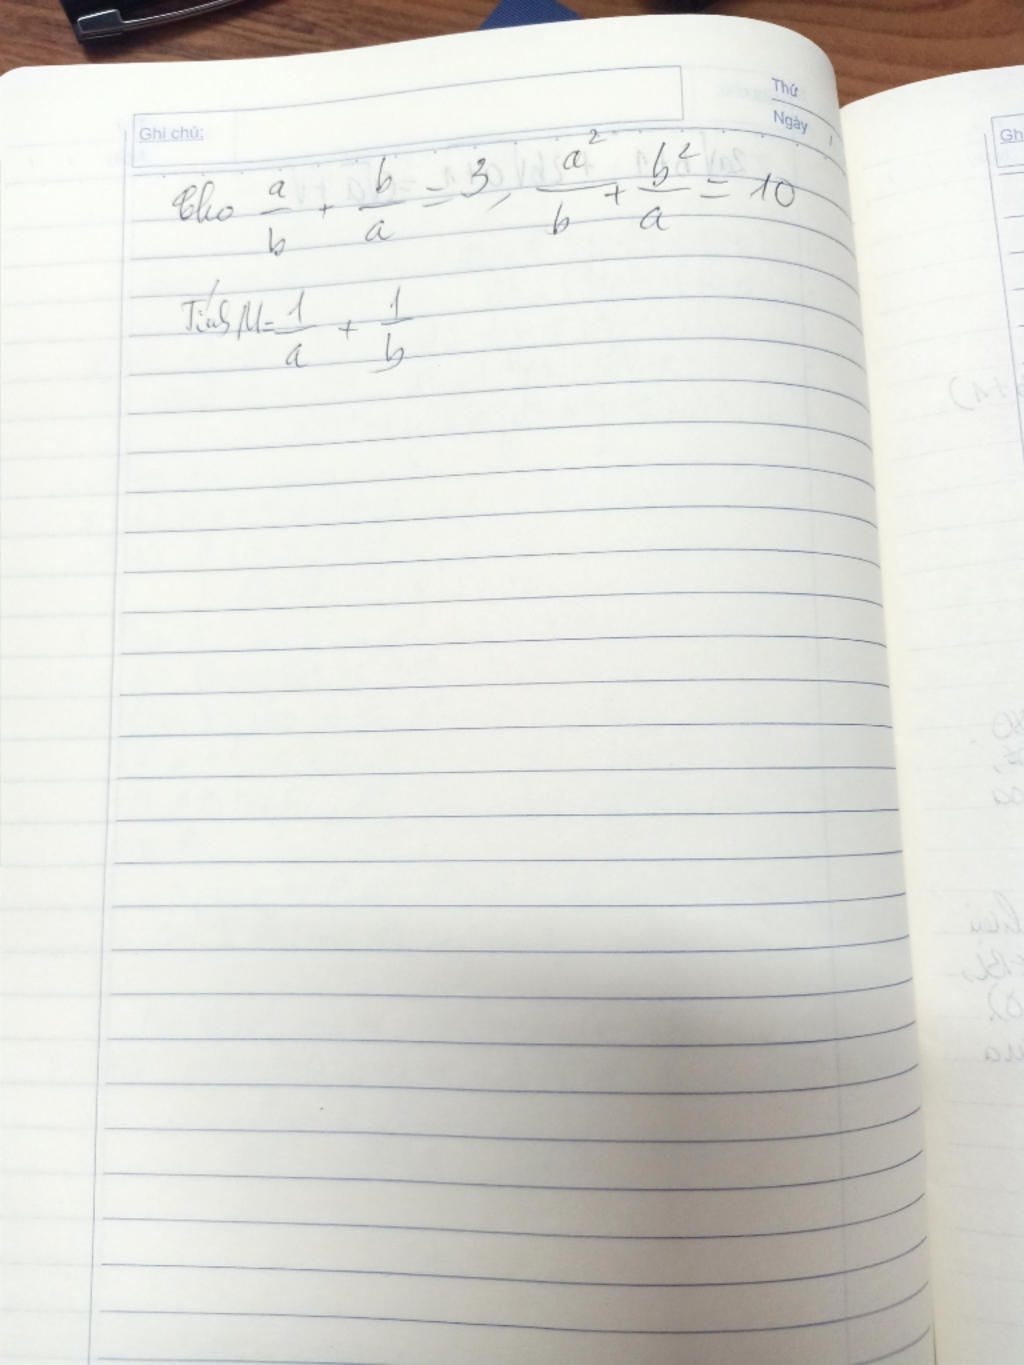 Thứ
Ghi chú: Ngày
Cho a/b + b/a = 3, a²/b + b²/a = 10
Tính M = 1/a + 1/b